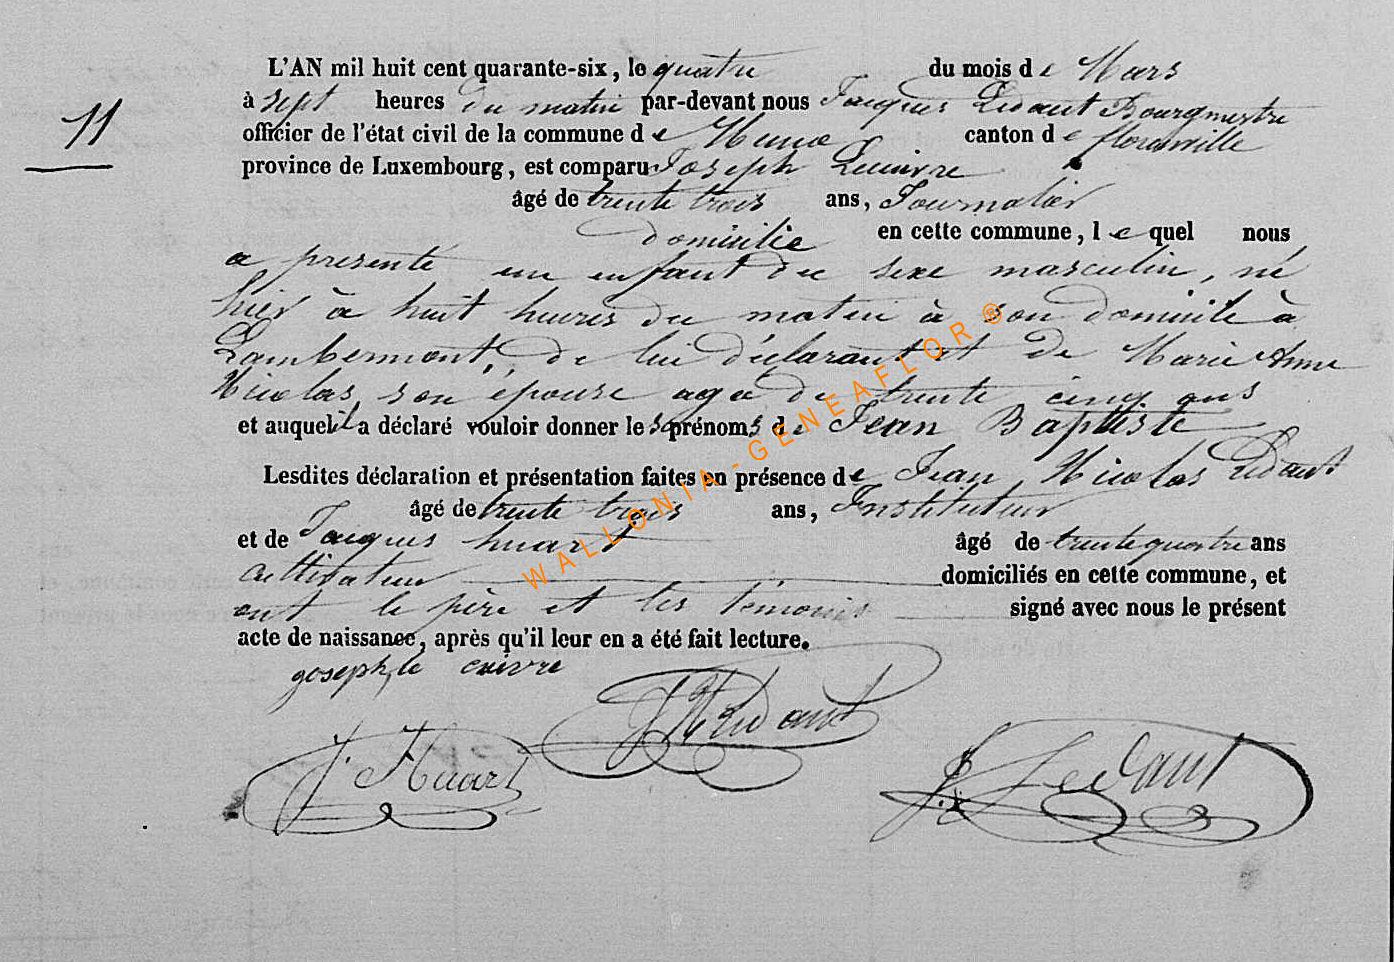 L'AN mil huit cent quarante-six, le quatre du mois de Mars
11
à sept heures du matin par-devant nous Jacques Ledant Bourgmestre
officier de l'état civil de la commune de Muno canton de florenville
province de Luxembourg, est comparu Joseph Lecuivre
âgé de trente trois ans, Journalier
domicilié en cette commune, lequel nous
a présenté un enfant du sexe masculin, né
hier à huit heures du matin à son domicile à
Lambermont, de lui déclarant et de Marie Anne
Nicolas, son épouse agée de trente cinq ans
et auquel il a déclaré vouloir donner les prénoms de Jean Baptiste
Lesdites déclaration et présentation faites en présence de Jean Nicolas Ledant
âgé de trente trois ans, Instituteur
et de Jacques huart âgé de trente quatre ans
cultivateur domiciliés en cette commune, et
ont le père et les témoins signé avec nous le présent
acte de naissance, après qu'il leur en a été fait lecture.
joseph le cuivre
JN Ledant
J. Huart
J. Ledant
WALLONIA-GENEAFLOR ®